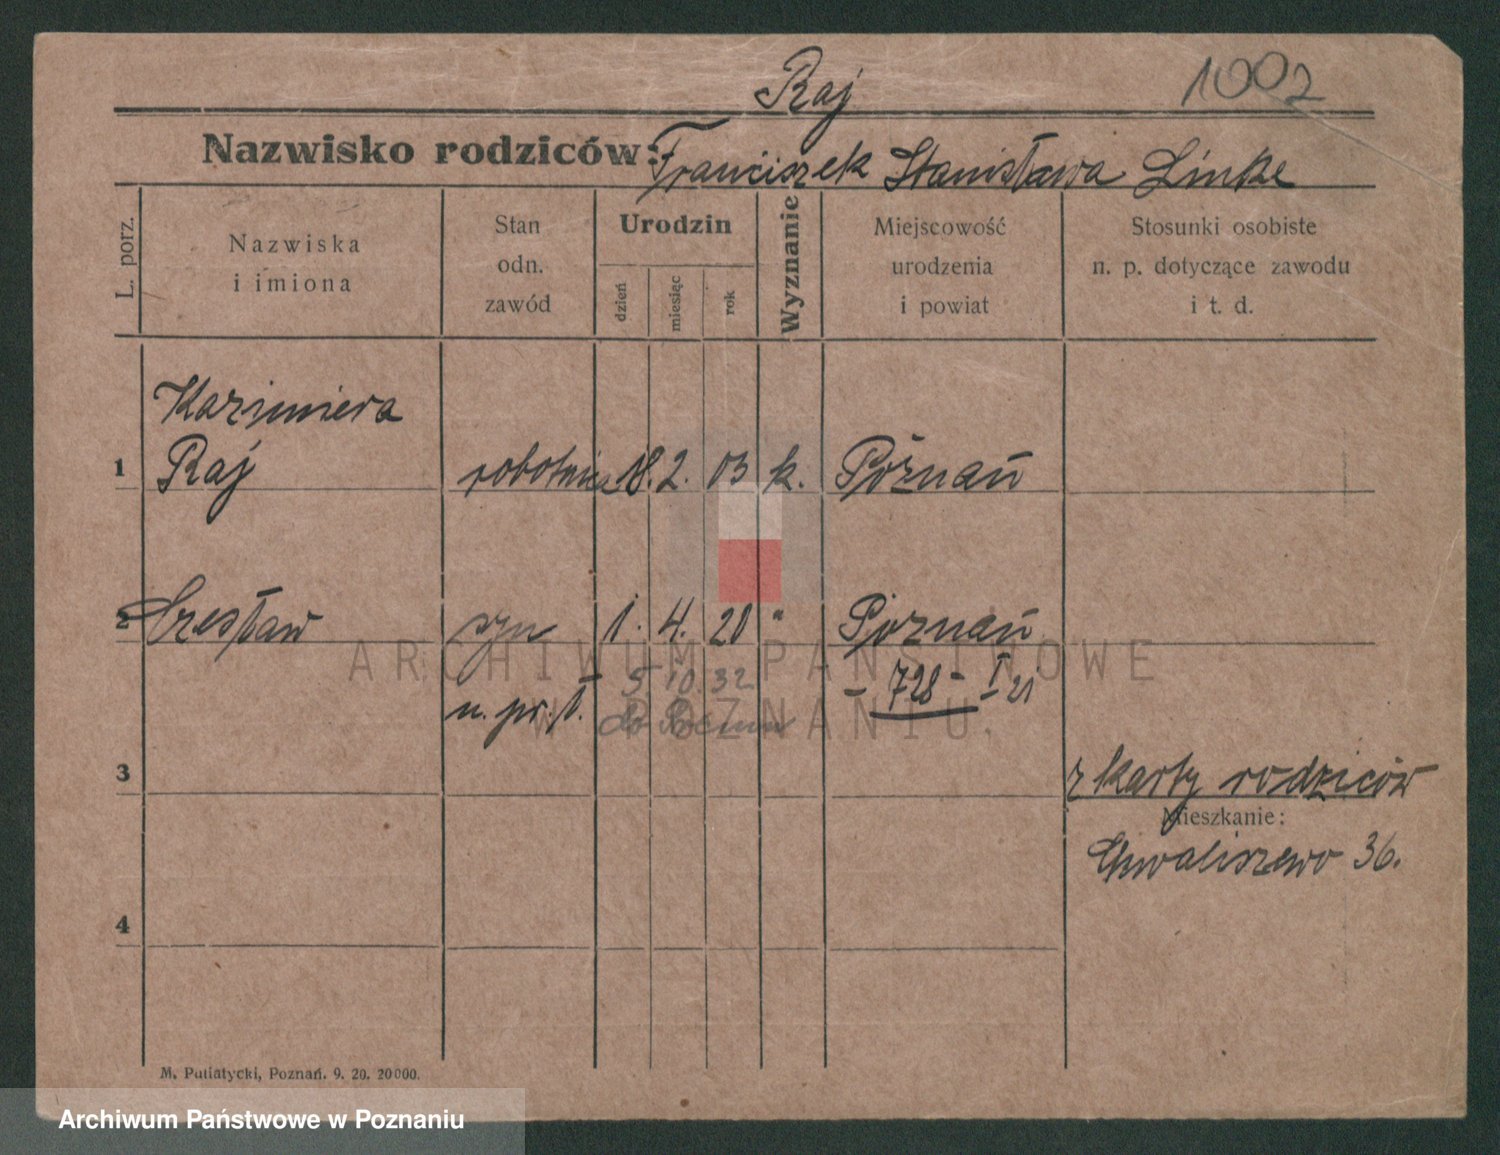 Raj
1002
Nazwisko rodziców: Franciszek Stanisława Linke
L. porz.
Nazwiska
i imiona
Stan
odn.
zawód
Urodzin
dzień
miesiąc
rok
Wyznanie
Miejscowość
urodzenia
i powiat
Stosunki osobiste
n. p. dotyczące zawodu
i t. d.
Kazimiera
1 Raj robotnica 18. 2. 03 k. Poznań
2 Czesław syn 1. 4. 20 " Poznań
n. pr. 5. 10. 32 - 728 - I 21
do
3
z karty rodziców
Mieszkanie:
Chwaliszewo 36.
4
M. Putiatycki, Poznań. 9. 20. 20000.
ARCHIWUM PAŃSTWOWE
W POZNANIU
Archiwum Państwowe w Poznaniu